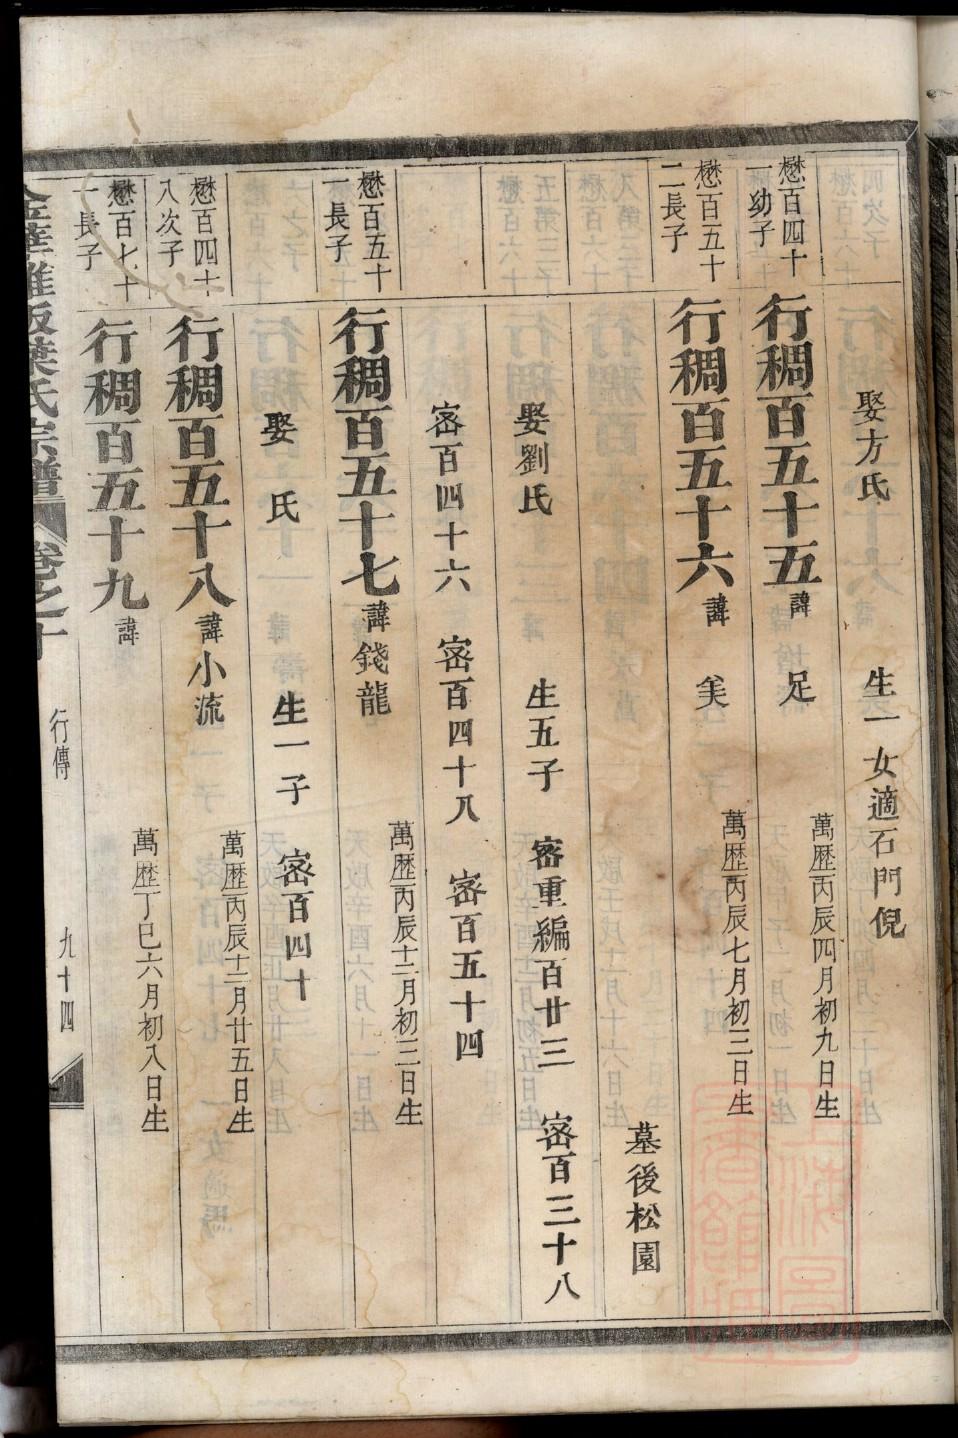 娶方氏 生一女適石門倪
懋百四十一幼子 行稠百五十五 諱 足 萬歴丙辰四月初九日生
懋百五十二長子 行稠百五十六 諱 美 萬歴丙辰七月初三日生
墓後松園
娶劉氏 生五子 密重編百廿三 密百三十八
密百四十六 密百四十八 密百五十四
懋百五十一長子 行稠百五十七 諱錢龍 萬歴丙辰十二月初三日生
娶 氏 生一子 密百四十
懋百四十八次子 行稠百五十八 諱小流 萬歴丙辰十二月廿五日生
懋百七十一長子 行稠百五十九 諱 萬歴丁巳六月初八日生
葉氏宗譜 卷之十 行傳 九十四